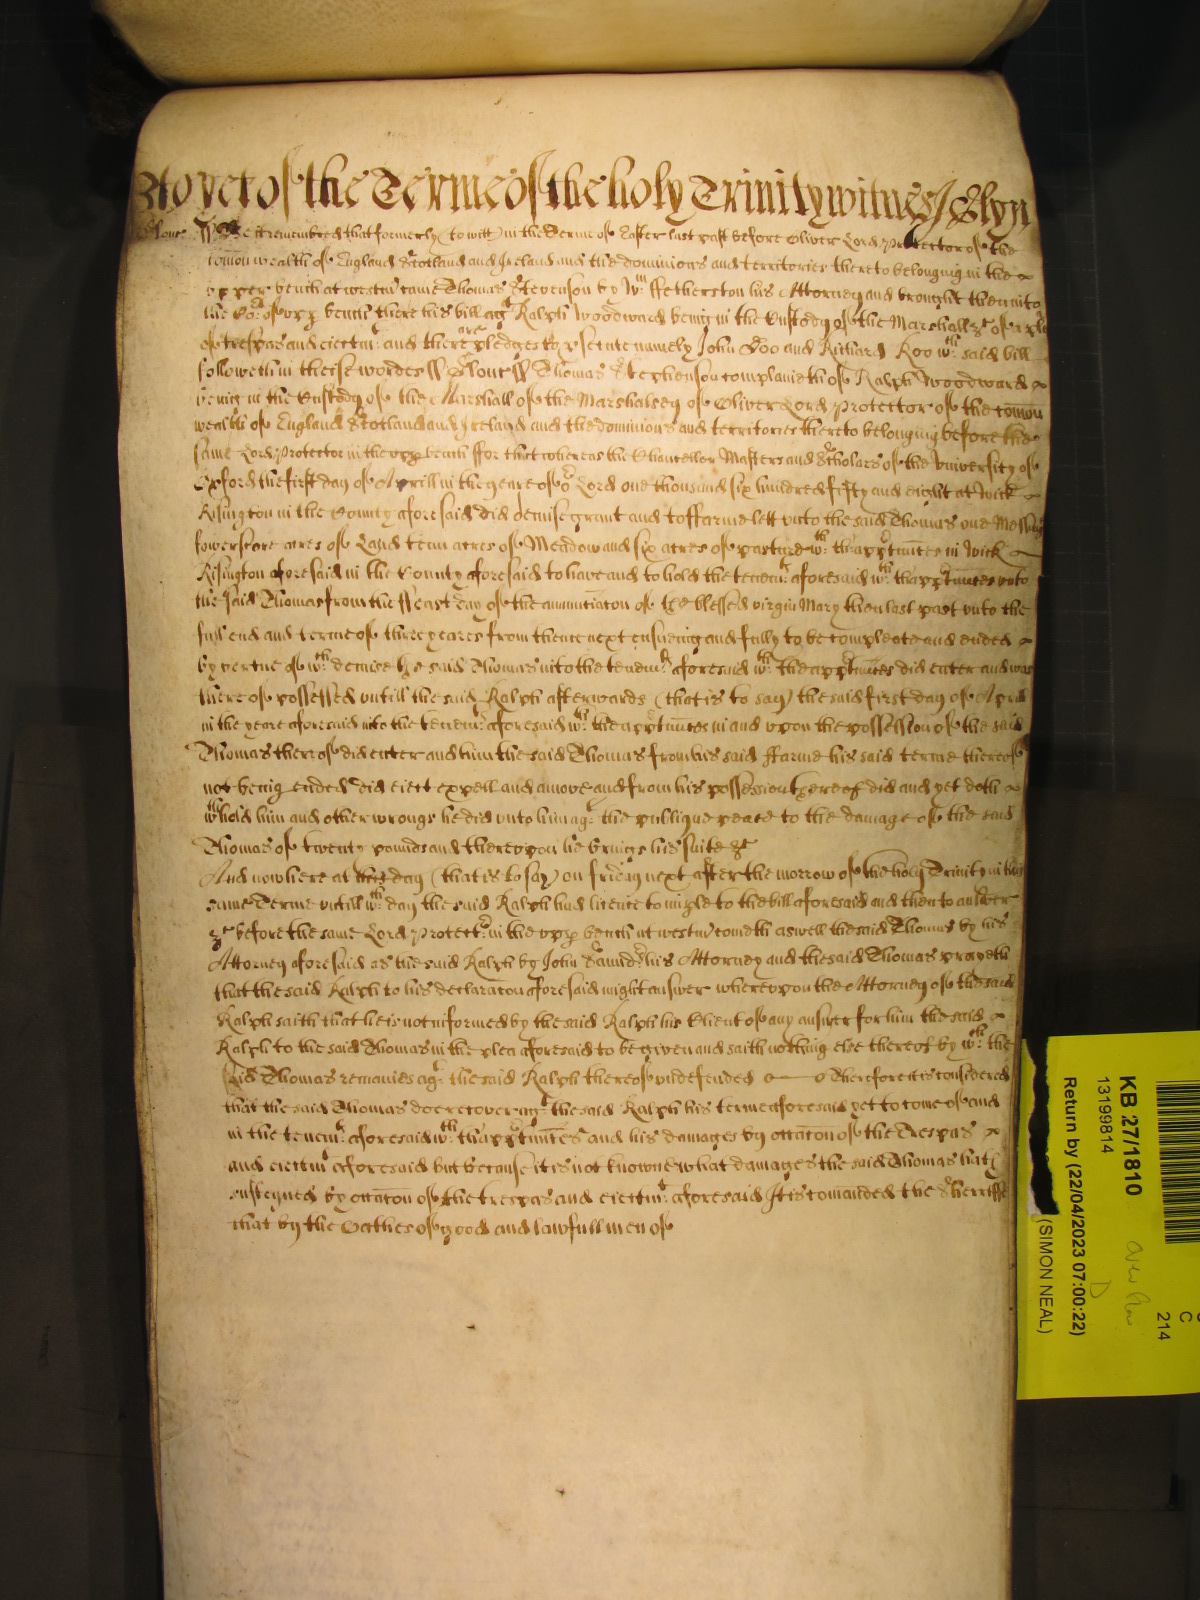 As yet of the Terme of the holy Trinity witnes J Glyn
Glouc SS Be it remembred that formerly (to witt) in the Terme of Easter last past before Oliver Lord Protector of the
comon wealth of England Scotland and Ireland and the dominions and territories thereto belonging in the
upper bench at westmr came Thomas Stevenson by Wm ffetherston his Attorney and brought then into
the Cort of upp bench there his bill agt Ralph Woodward being in the Custody of the Marshall &c of a plea
of trespas and eiectmt and there are pledges to psecute namely John Doo and Richard Roo wch said bill
followeth in theise wordes SS Glouc SS Thomas Stephenson complaineth of Ralph Woodward
being in the Custody of the Marshall of the Marshalsey of Oliver Lord Protector of the comon
wealth of England Scotland and Ireland and the dominions and territories thereto belonging before the
same Lord Protector in the upp bench ffor that whereas the Chancellor Masters and Schollars of the University of
Oxford the first day of Aprill in the yeare of or Lord one thousand six hundred fifty and eight at Wick
Risington in the County aforesaid did demise grant and to ffarme lett unto the said Thomas one Messuage
fowerscore acres of Land tenn acres of Meadow and six acres of pasture wth thapptnncs in Wick
Risington aforesaid in the County aforesaid to have and to hold the tenemts aforesaid wth thapptnncs unto
the said Thomas from the ffeast day of the annuntiacon of the blessed virgin Mary then last past unto the
full end and terme of three yeares from thence next ensueing and fully to be compleate and ended
by vertue of wch demise the said Thomas into the tenemts aforesaid wth the apptnncs did enter and was
thereof possessed untill the said Ralph afterwards (that is to say) the said first day of Aprill
in the yeare aforesaid into the tenemts aforesaid wth the apptnncs in and upon the possession of the said
Thomas thereof did enter and him the said Thomas from his said ffarme his said terme thereof
not being ended did eiect expell and amove and from his possession thereof did and yet doth
wthhold him and other wrongs he did unto him agt the publique peace to the damage of the said
Thomas of twenty pounds and thereupon he brings his suite &c
And now here at this day (that is to say) on friday next after the morrow of the holy Trinity in this
same Terme untill wch day the said Ralph had licence to imple to the bill aforesaid and then to answer
&c before the same Lord Protector in the upp bench at westmr cometh aswell the said Thomas by his
Attorney aforesaid as the said Ralph by John his Attorney and the said Thomas prayeth
that the said Ralph to his declaracon aforesaid might answer whereupon the Attorney of the said
Ralph saith that he is not informed by the said Ralph his Client of any answer for him the said
Ralph to the said Thomas in the plea aforesaid to be given and saith nothing else thereof by wch the
said Thomas remaines agt the said Ralph thereof undefended Therefore it is considered
that the said Thomas doe recover agt the said Ralph his terme aforesaid yet to come of and
in the tenemts aforesaid wth thapptnncs and his damages by occacon of the Trespas
and eiectmt aforesaid but because it is not knowne what damages the said Thomas hath
susteyned by occacon of the trespas and eiectmt aforesaid It is comanded the Sherriffe
that by the Oathes of good and lawfull men of
C
214
KB 27/1810
13199814
Return by (22/04/2023 07:00:22)
(SIMON NEAL)